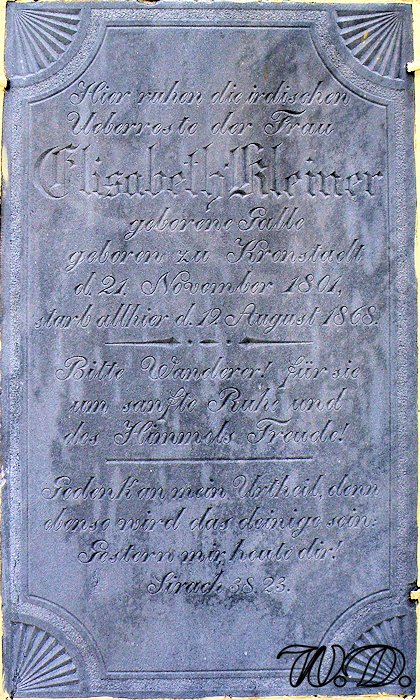 Hier ruhen die irdischen
Ueberreste der Frau
Elisabeth Kleiner
geborene Galle
geboren zu Kronstadt
d. 21. November 1801,
starb allhier d. 12. August 1868.
Bitte Wanderer! für sie
um sanfte Ruhe und
des Himmels Freude!
Gedenk an mein Urtheil, denn
ebenso wird das deinige sein:
Gestern mir, heute dir!
Sirach 38. 23.
W.D.